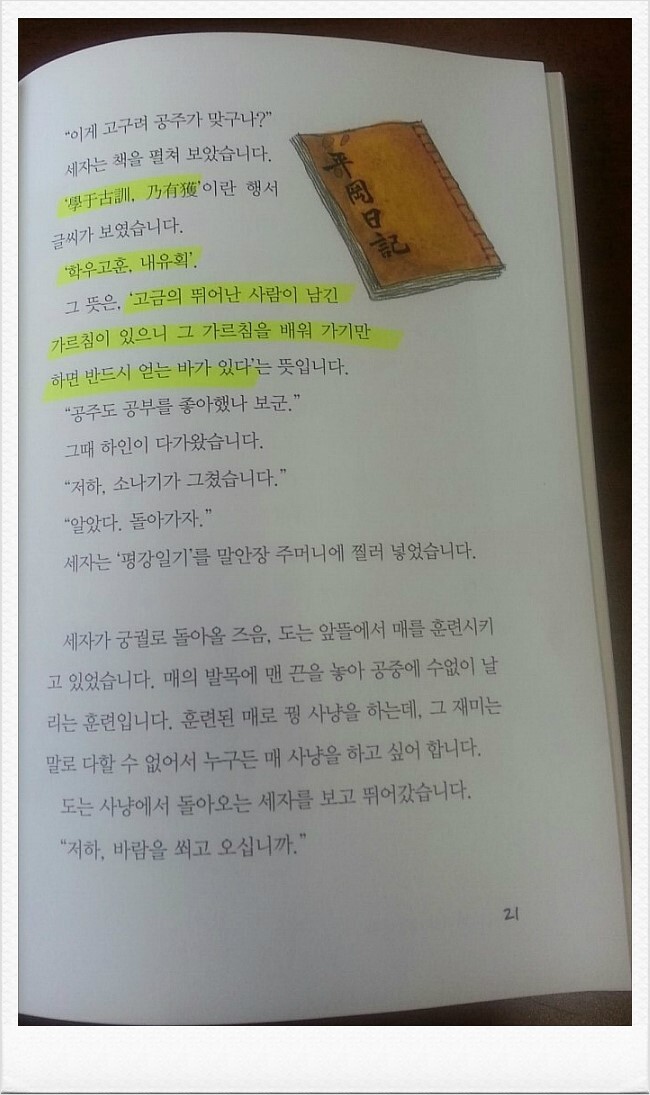 “이게 고구려 공주가 맞구나?”
세자는 책을 펼쳐 보았습니다.
‘學于古訓, 乃有獲’이란 행서
글씨가 보였습니다.
‘학우고훈, 내유획’.
그 뜻은, ‘고금의 뛰어난 사람이 남긴
가르침이 있으니 그 가르침을 배워 가기만
하면 반드시 얻는 바가 있다’는 뜻입니다.
“공주도 공부를 좋아했나 보군.”
그때 하인이 다가왔습니다.
“저하, 소나기가 그쳤습니다.”
“알았다. 돌아가자.”
세자는 ‘평강일기’를 말안장 주머니에 찔러 넣었습니다.
세자가 궁궐로 돌아올 즈음, 도는 앞뜰에서 매를 훈련시키
고 있었습니다. 매의 발목에 맨 끈을 놓아 공중에 수없이 날
리는 훈련입니다. 훈련된 매로 꿩 사냥을 하는데, 그 재미는
말로 다할 수 없어서 누구든 매 사냥을 하고 싶어 합니다.
도는 사냥에서 돌아오는 세자를 보고 뛰어갔습니다.
“저하, 바람을 쐬고 오십니까.”
21
平岡日記